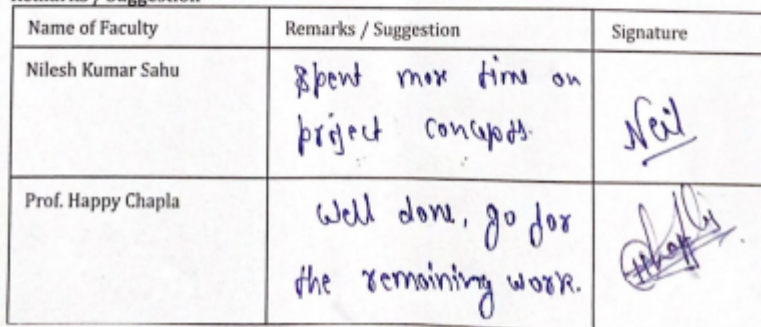 Remarks / Suggestion
Name of Faculty Remarks / Suggestion Signature
Nilesh Kumar Sahu
Spent more time on
project concepts.
Neil
Prof. Happy Chapla
Well done, go for
the remaining work.